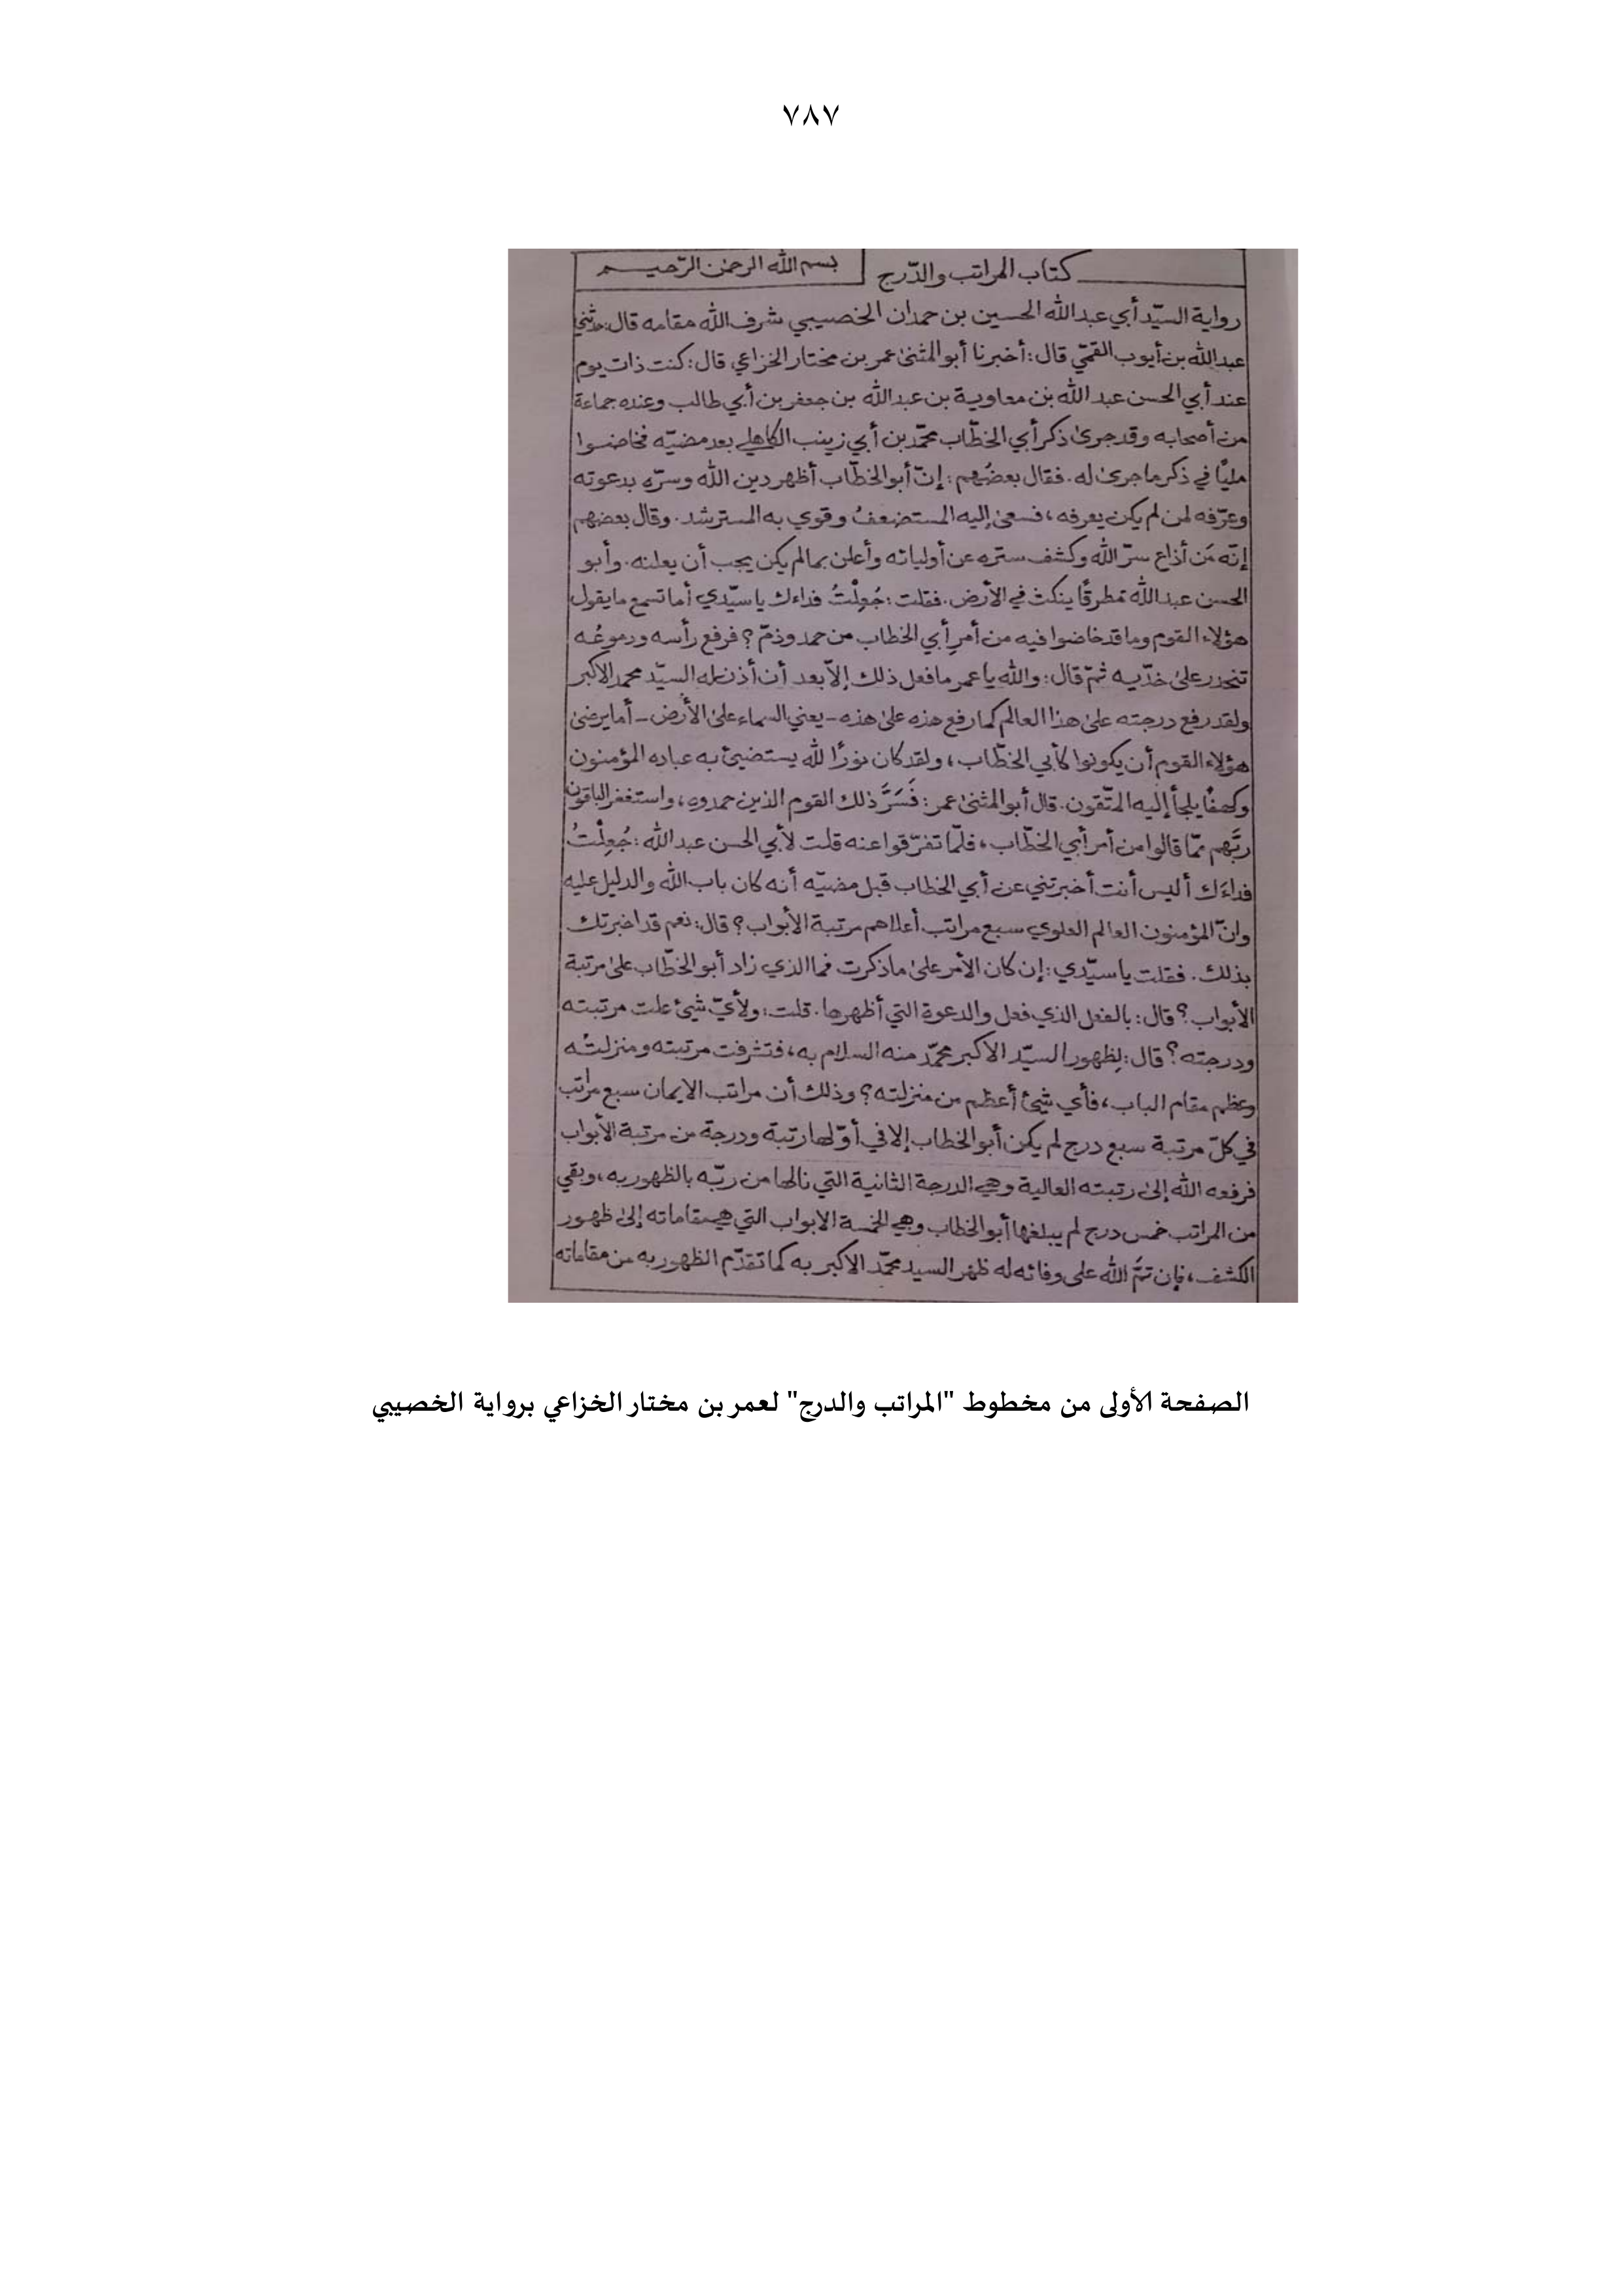 ٧٨٧
كتاب المراتب والدّرج بسم الله الرحمن الرّحيم
رواية السيّد أبي عبد الله الحسين بن حمدان الخصيبي شرف الله مقامه قال: حدثني
عبد الله بن أيوب القمّي قال: أخبرنا أبو المثنىٰ عمر بن مختار الخزاعي قال: كنت ذات يوم
عند أبي الحسن عبد الله بن معاوية بن عبد الله بن جعفر بن أبي طالب وعنده جماعة
من أصحابه وقد جرىٰ ذكر أبي الخطّاب محمّد بن أبي زينب الكاهلي بعد مضيّه فخاضوا
مليًّا في ذكر ما جرىٰ له. فقال بعضُهم: إنّ أبو الخطّاب أظهر دين الله وسرّه بدعوته
وعرّفه لمن لم يكن يعرفه، فسعىٰ إليه المستضعفُ وقوي به المسترشد. وقال بعضهم
إنّه مَن أذاع سرّ الله وكشف ستره عن أوليائه وأعلن بما لم يكن يجب أن يعلنه. وأبو
الحسن عبد الله مطرقًا ينكث في الأرض. فقلت: جُعِلْتُ فداءك يا سيّدي أما تسمع ما يقول
هؤلاء القوم وما قد خاضوا فيه من أمرِ أبي الخطاب من حمد وذمّ؟ فرفع رأسه ودموعُه
تنحدر علىٰ خدّيه ثمّ قال: والله يا عمر ما فعل ذلك إلاّ بعد أن أذن له السيّد محمد الاكبر
ولقد رفع درجته علىٰ هذا العالم كما رفع هذه علىٰ هذه - يعني السماء علىٰ الأرض - أما يرضىٰ
هؤلاء القوم أن يكونوا كأبي الخطّاب، ولقد كان نورًا لله يستضيئ به عباده المؤمنون
وكهفًا يلجأ إليه المتّقون. قال أبو المثنىٰ عمر: فَسَرَّ ذلك القوم الذين حمدوه، واستغفر الباقون
ربَّهم ممّا قالوا من أمر أبي الخطّاب، فلمّا تفرّقوا عنه قلت لأبي الحسن عبد الله: جُعِلْتُ
فداءَك أليس أنت أخبرتني عن أبي الخطاب قبل مضيّه أنه كان باب الله والدليل عليه
وانّ المؤمنون العالم العلوي سبع مراتب أعلاهم مرتبة الأبواب؟ قال: نعم قد اخبرتك
بذلك. فقلت يا سيّدي: إن كان الأمر علىٰ ما ذكرت فما الذي زاد أبو الخطّاب علىٰ مرتبة
الأبواب؟ قال: بالفعل الذي فعل والدعوة التي أظهرها. قلت: ولأيّ شيئ علت مرتبته
ودرجته؟ قال: لِظهور السيّد الاكبر محمّد منه السلام به، فتشرفت مرتبته ومنزلتُه
وعظم مقام الباب، فأي شيئ أعظم من منزلته؟ وذلك أن مراتب الايمان سبع مراتب
في كلّ مرتبة سبع درج لم يكن أبو الخطاب إلا في أوّلها رتبة ودرجة من مرتبة الأبواب
فرفعه الله إلىٰ رتبته العالية وهي الدرجة الثانية التي نالها من ربّه بالظهور به، وبقي
من المراتب خمس درج لم يبلغها أبو الخطاب وهي الخمسة الابواب التي هي مقاماته إلىٰ ظهور
الكشف، فإن تمَّ الله على وفائه له ظهر السيد محمّد الاكبر به كما تقدّم الظهور به من مقاماته
الصفحة الأولى من مخطوط "المراتب والدرج" لعمر بن مختار الخزاعي برواية الخصيبي